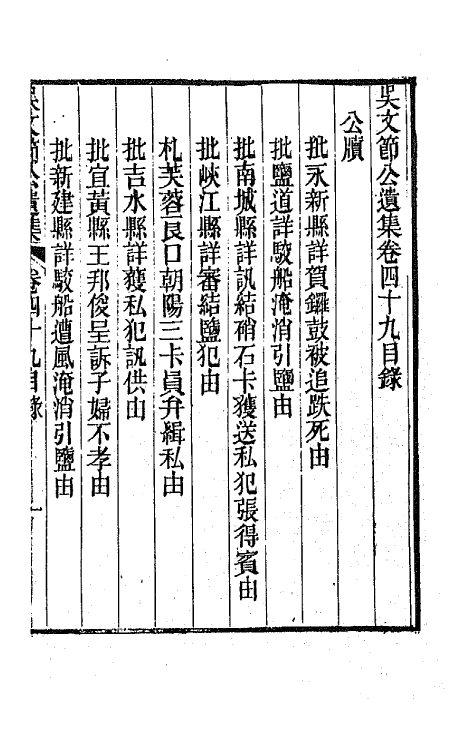 吳文節公遺集卷四十九目錄
公牘
批永新縣詳賀鑼鼓被追跌死由
批鹽道詳駮船淹消引鹽由
批南城縣詳訊結硝石卡獲送私犯張得賓由
批峽江縣詳審結鹽犯由
札芙蓉良口朝陽三卡員弁緝私由
批吉水縣詳獲私犯訊供由
批宜黃縣王邦俊呈訴子婦不孝由
批新建縣詳駮船遭風淹消引鹽由
吳文節公遺集 卷四十九目錄 一